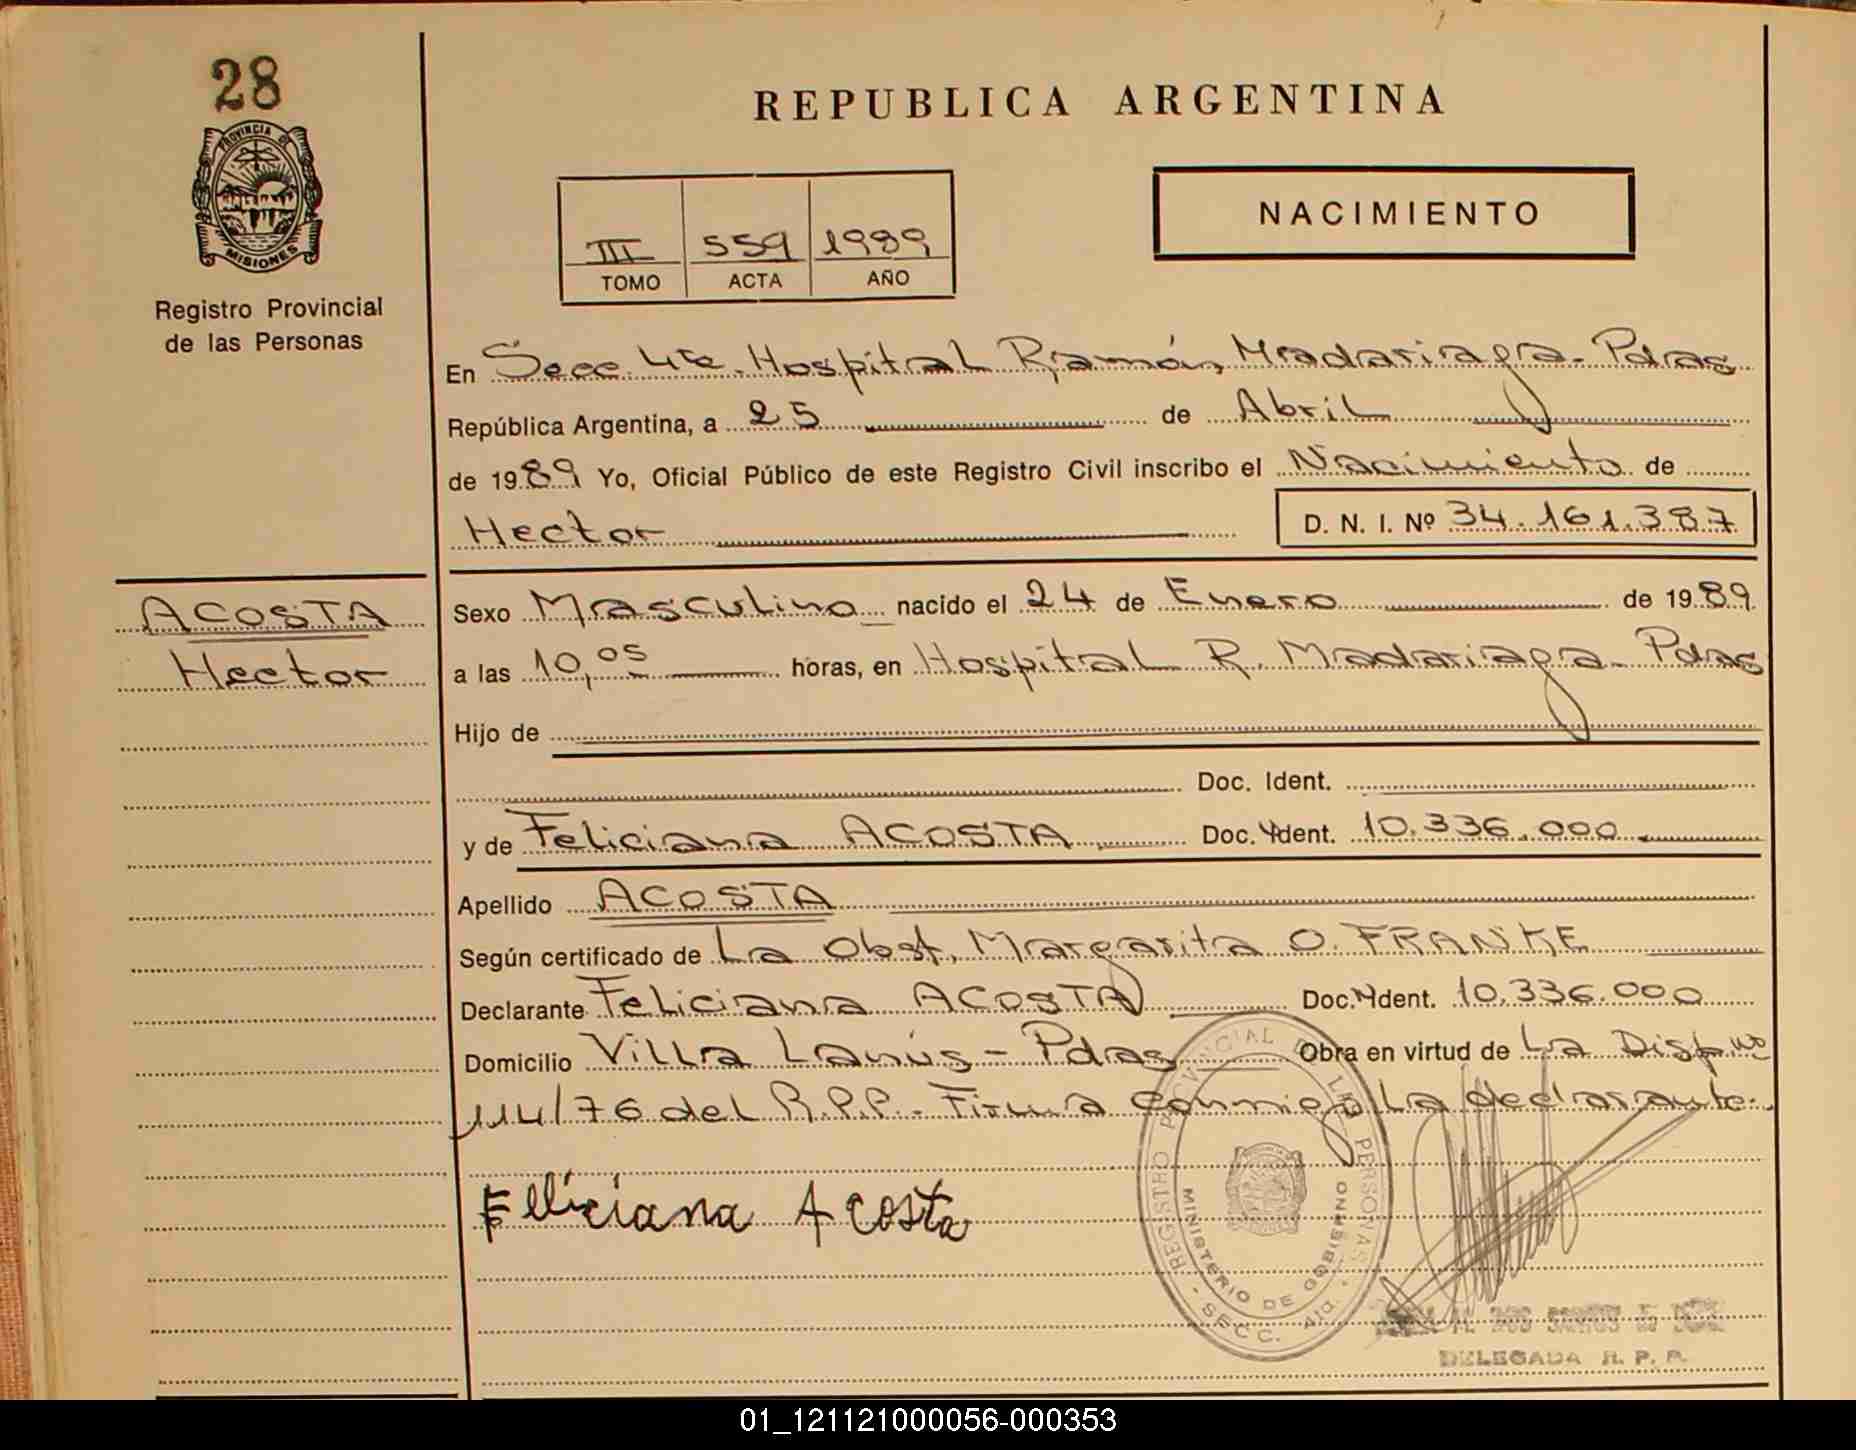 28
PROVINCIA DE
MISIONES
Registro Provincial
de las Personas
REPUBLICA ARGENTINA
III 559 1989
TOMO ACTA AÑO
NACIMIENTO
En Secc. 4ta. Hospital Ramón Madariaga - Pdas
República Argentina, a 25 de Abril
de 1989 Yo, Oficial Público de este Registro Civil inscribo el Nacimiento de
Hector D. N. I. Nº 34.161.387
ACOSTA
Hector
Sexo Masculino nacido el 24 de Enero de 1989
a las 10,05 horas, en Hospital R. Madariaga - Pdas
Hijo de
Doc. Ident.
y de Feliciana ACOSTA Doc. Ident. 10.336.000
Apellido ACOSTA
Según certificado de La Obst. Margarita O. FRANKE
Declarante Feliciana ACOSTA Doc. Ident. 10.336.000
Domicilio Villa Lanús - Pdas Obra en virtud de La Disp. nº
114/76 del R.P.P. - Firma conmigo La declarante.
Elliciana Acosta
REGISTRO PROVINCIAL DE LAS PERSONAS
MINISTERIO DE GOBIERNO
SECC. 4ta.
DOS SANTOS
DELEGADA R. P. P.
01_121121000056-000353